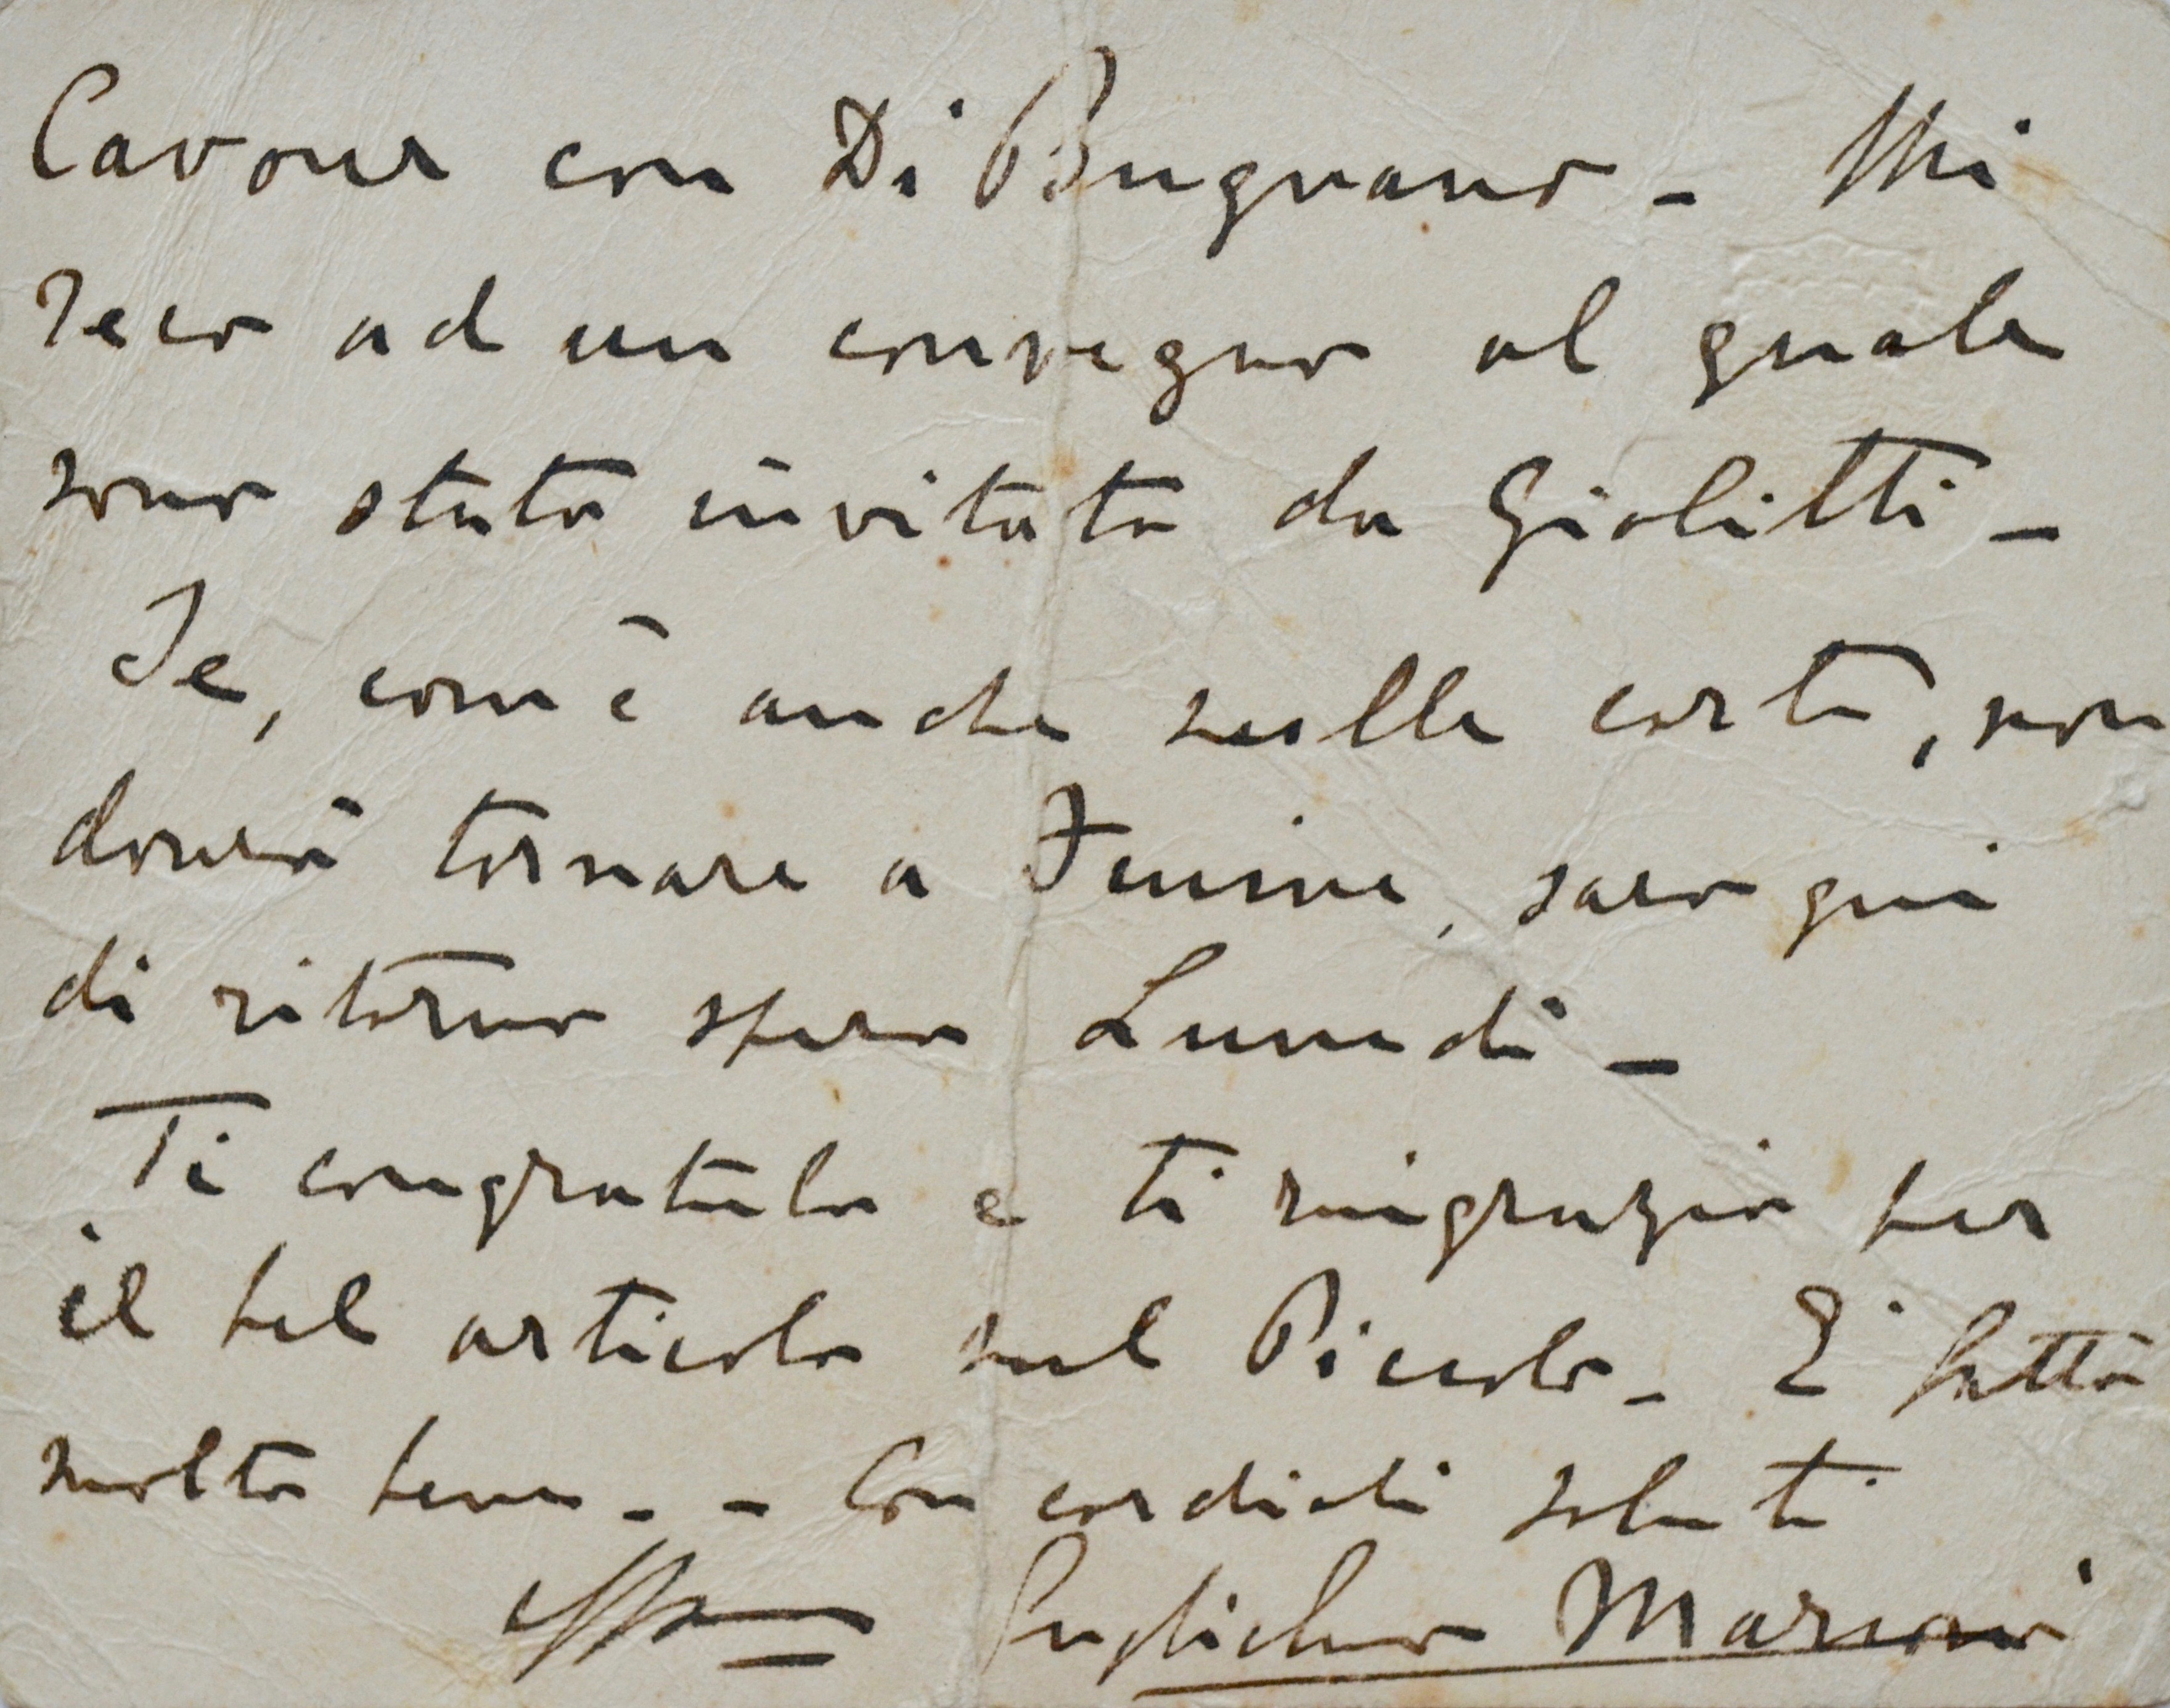 Cavour con Di Brugnano - Mi
reco ad un convegno al quale
sono stato invitato da Giolitti -
Se, com'è anche nelle carte, non
dovrò tornare a Fiume, sarò qui
di ritorno spero Lunedì -
Ti congratulo e ti ringrazio per
il bel articolo sul Piccolo - E' fatto
molto bene. - Con cordiali saluti
Guglielmo Marconi